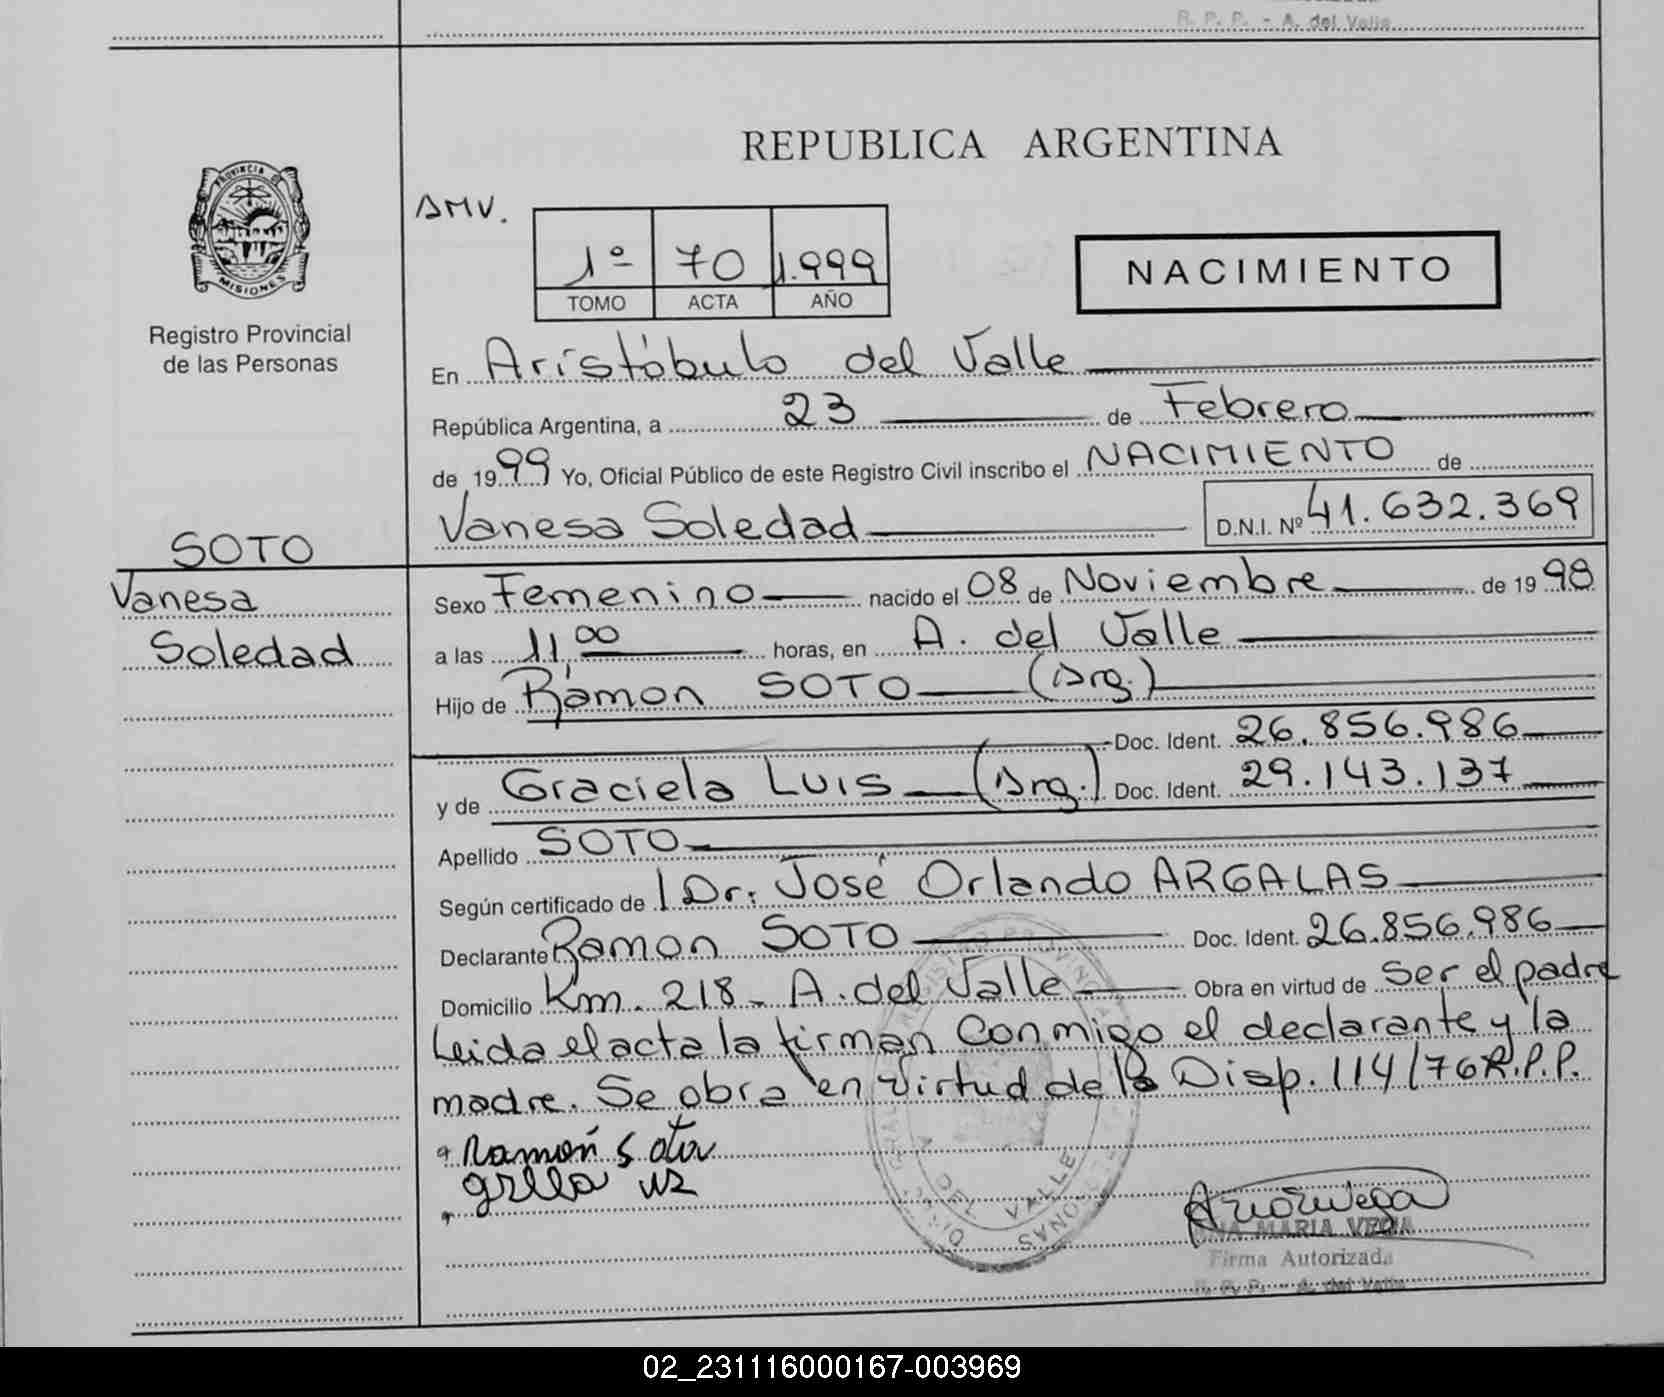 R. P. P. - A. del Valle
REPUBLICA ARGENTINA
PROVINCIA DE
MISIONES
Registro Provincial
de las Personas
AMV.
1º 70 1.999
TOMO ACTA AÑO
NACIMIENTO
En Arístóbulo del Valle
República Argentina, a 23 de Febrero
de 1999 Yo, Oficial Público de este Registro Civil inscribo el NACIMIENTO de
Vanesa Soledad D.N.I. Nº 41.632.369
SOTO
Vanesa
Soledad
Sexo Femenino nacido el 08 de Noviembre de 1998
a las 11,00 horas, en A. del Valle
Hijo de Rámon SOTO (Arg.)
Doc. Ident. 26.856.986
y de Graciela LUIS (Arg.) Doc. Ident. 29.143.137
Apellido SOTO
Según certificado de Dr: José Orlando ARGALAS
Declarante Ramon SOTO Doc. Ident. 26.856.986
Domicilio Km. 218 - A. del Valle Obra en virtud de ser el padre
Leida el acta la firman conmigo el declarante y la
madre. Se obra en virtud de la Disp. 114/76 R.P.P.
Ramón Soto
A DEL VALLE
ANA MARIA VEGA
Firma Autorizada
R. P. P. - A. del Valle
02_231116000167-003969